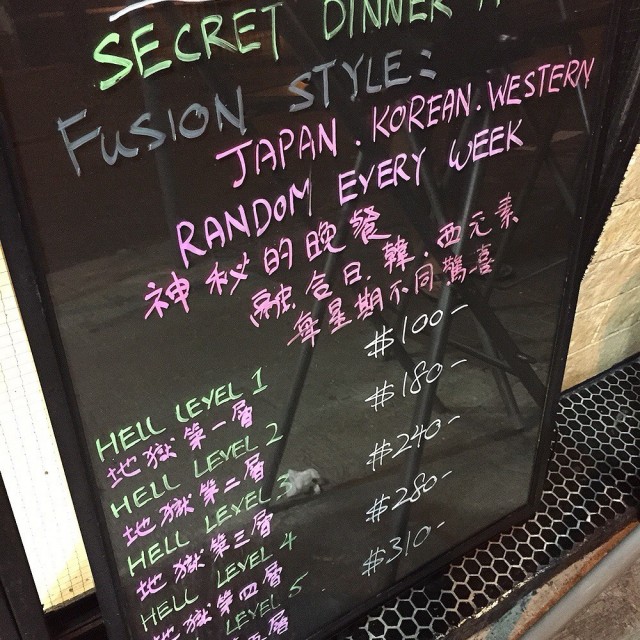 SECRET DINNER
FUSION STYLE:
JAPAN . KOREAN . WESTERN
RANDOM EVERY WEEK
神秘的晚餐
融合日.韓.西元素
每星期不同驚喜
HELL LEVEL 1 $100-
地獄第一層
HELL LEVEL 2 $180-
地獄第二層
HELL LEVEL 3 $240-
地獄第三層
HELL LEVEL 4 $280-
地獄第四層
HELL LEVEL 5 $310-